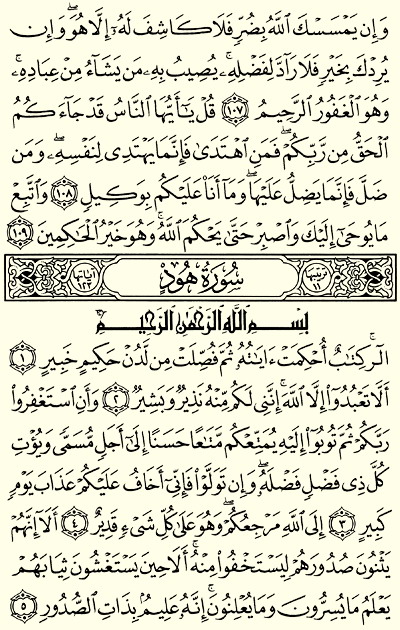 وَإِن يَمْسَسْكَ ٱللَّهُ بِضُرٍّ فَلَا كَاشِفَ لَهُۥٓ إِلَّا هُوَ ۖ وَإِن
يُرِدْكَ بِخَيْرٍ فَلَا رَآدَّ لِفَضْلِهِۦ ۚ يُصِيبُ بِهِۦ مَن يَشَآءُ مِنْ عِبَادِهِۦ ۚ
وَهُوَ ٱلْغَفُورُ ٱلرَّحِيمُ ١٠٧ قُلْ يَٰٓأَيُّهَا ٱلنَّاسُ قَدْ جَآءَكُمُ
ٱلْحَقُّ مِن رَّبِّكُمْ ۖ فَمَنِ ٱهْتَدَىٰ فَإِنَّمَا يَهْتَدِى لِنَفْسِهِۦ ۖ وَمَن
ضَلَّ فَإِنَّمَا يَضِلُّ عَلَيْهَا ۖ وَمَآ أَنَا۠ عَلَيْكُم بِوَكِيلٍ ١٠٨ وَٱتَّبِعْ
مَا يُوحَىٰٓ إِلَيْكَ وَٱصْبِرْ حَتَّىٰ يَحْكُمَ ٱللَّهُ ۚ وَهُوَ خَيْرُ ٱلْحَٰكِمِينَ ١٠٩
ترتيبها ١١ سُورَةُ هُودٍ آياتها ١٢٣
بِسْمِ ٱللَّهِ ٱلرَّحْمَٰنِ ٱلرَّحِيمِ
الٓر ۚ كِتَٰبٌ أُحْكِمَتْ ءَايَٰتُهُۥ ثُمَّ فُصِّلَتْ مِن لَّدُنْ حَكِيمٍ خَبِيرٍ ١
أَلَّا تَعْبُدُوٓا۟ إِلَّا ٱللَّهَ ۚ إِنَّنِى لَكُم مِّنْهُ نَذِيرٌ وَبَشِيرٌ ٢ وَأَنِ ٱسْتَغْفِرُوا۟
رَبَّكُمْ ثُمَّ تُوبُوٓا۟ إِلَيْهِ يُمَتِّعْكُم مَّتَٰعًا حَسَنًا إِلَىٰٓ أَجَلٍ مُّسَمًّى وَيُؤْتِ
كُلَّ ذِى فَضْلٍ فَضْلَهُۥ ۖ وَإِن تَوَلَّوْا۟ فَإِنِّىٓ أَخَافُ عَلَيْكُمْ عَذَابَ يَوْمٍ
كَبِيرٍ ٣ إِلَى ٱللَّهِ مَرْجِعُكُمْ ۖ وَهُوَ عَلَىٰ كُلِّ شَىْءٍ قَدِيرٌ ٤ أَلَآ إِنَّهُمْ
يَثْنُونَ صُدُورَهُمْ لِيَسْتَخْفُوا۟ مِنْهُ ۚ أَلَا حِينَ يَسْتَغْشُونَ ثِيَابَهُمْ
يَعْلَمُ مَا يُسِرُّونَ وَمَا يُعْلِنُونَ ۚ إِنَّهُۥ عَلِيمٌۢ بِذَاتِ ٱلصُّدُورِ ٥